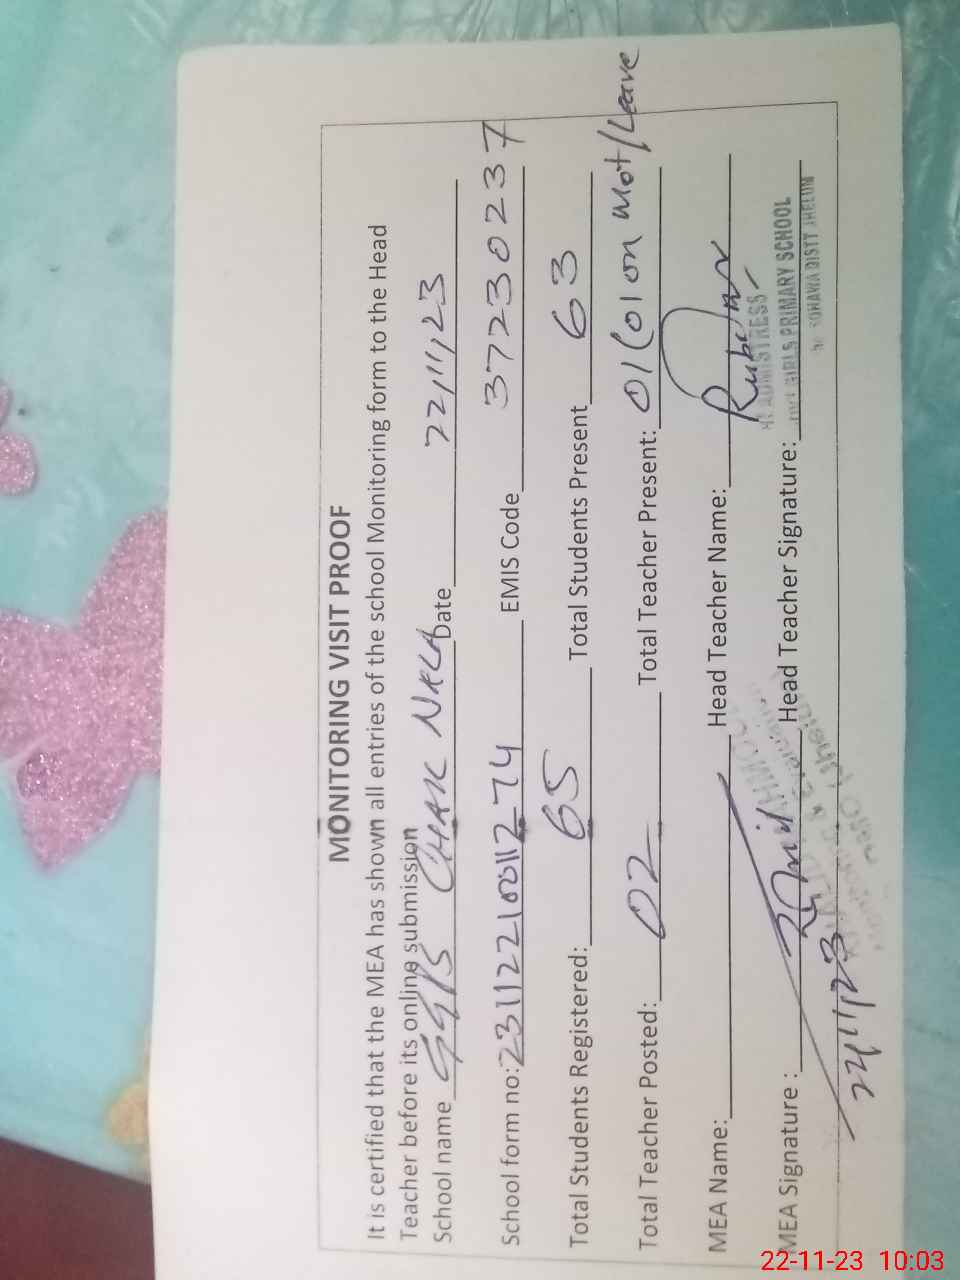 MONITORING VISIT PROOF
It is certified that the MEA has shown all entries of the school Monitoring form to the Head
Teacher before its online submission
School name GGPS CHAK NKLA Date 22/11/23
School form no: EMIS Code 37230237
Total Students Registered: 65 Total Students Present 63
Total Teacher Posted: 02 Total Teacher Present: 01 (01 on Mat/Leave
MEA Name: Head Teacher Name:
HEADMISTRESS
MEA Signature : Head Teacher Signature: GIRLS PRIMARY SCHOOL
SOHAWA DISTT JHELUM
22/11/23
22-11-23 10:03